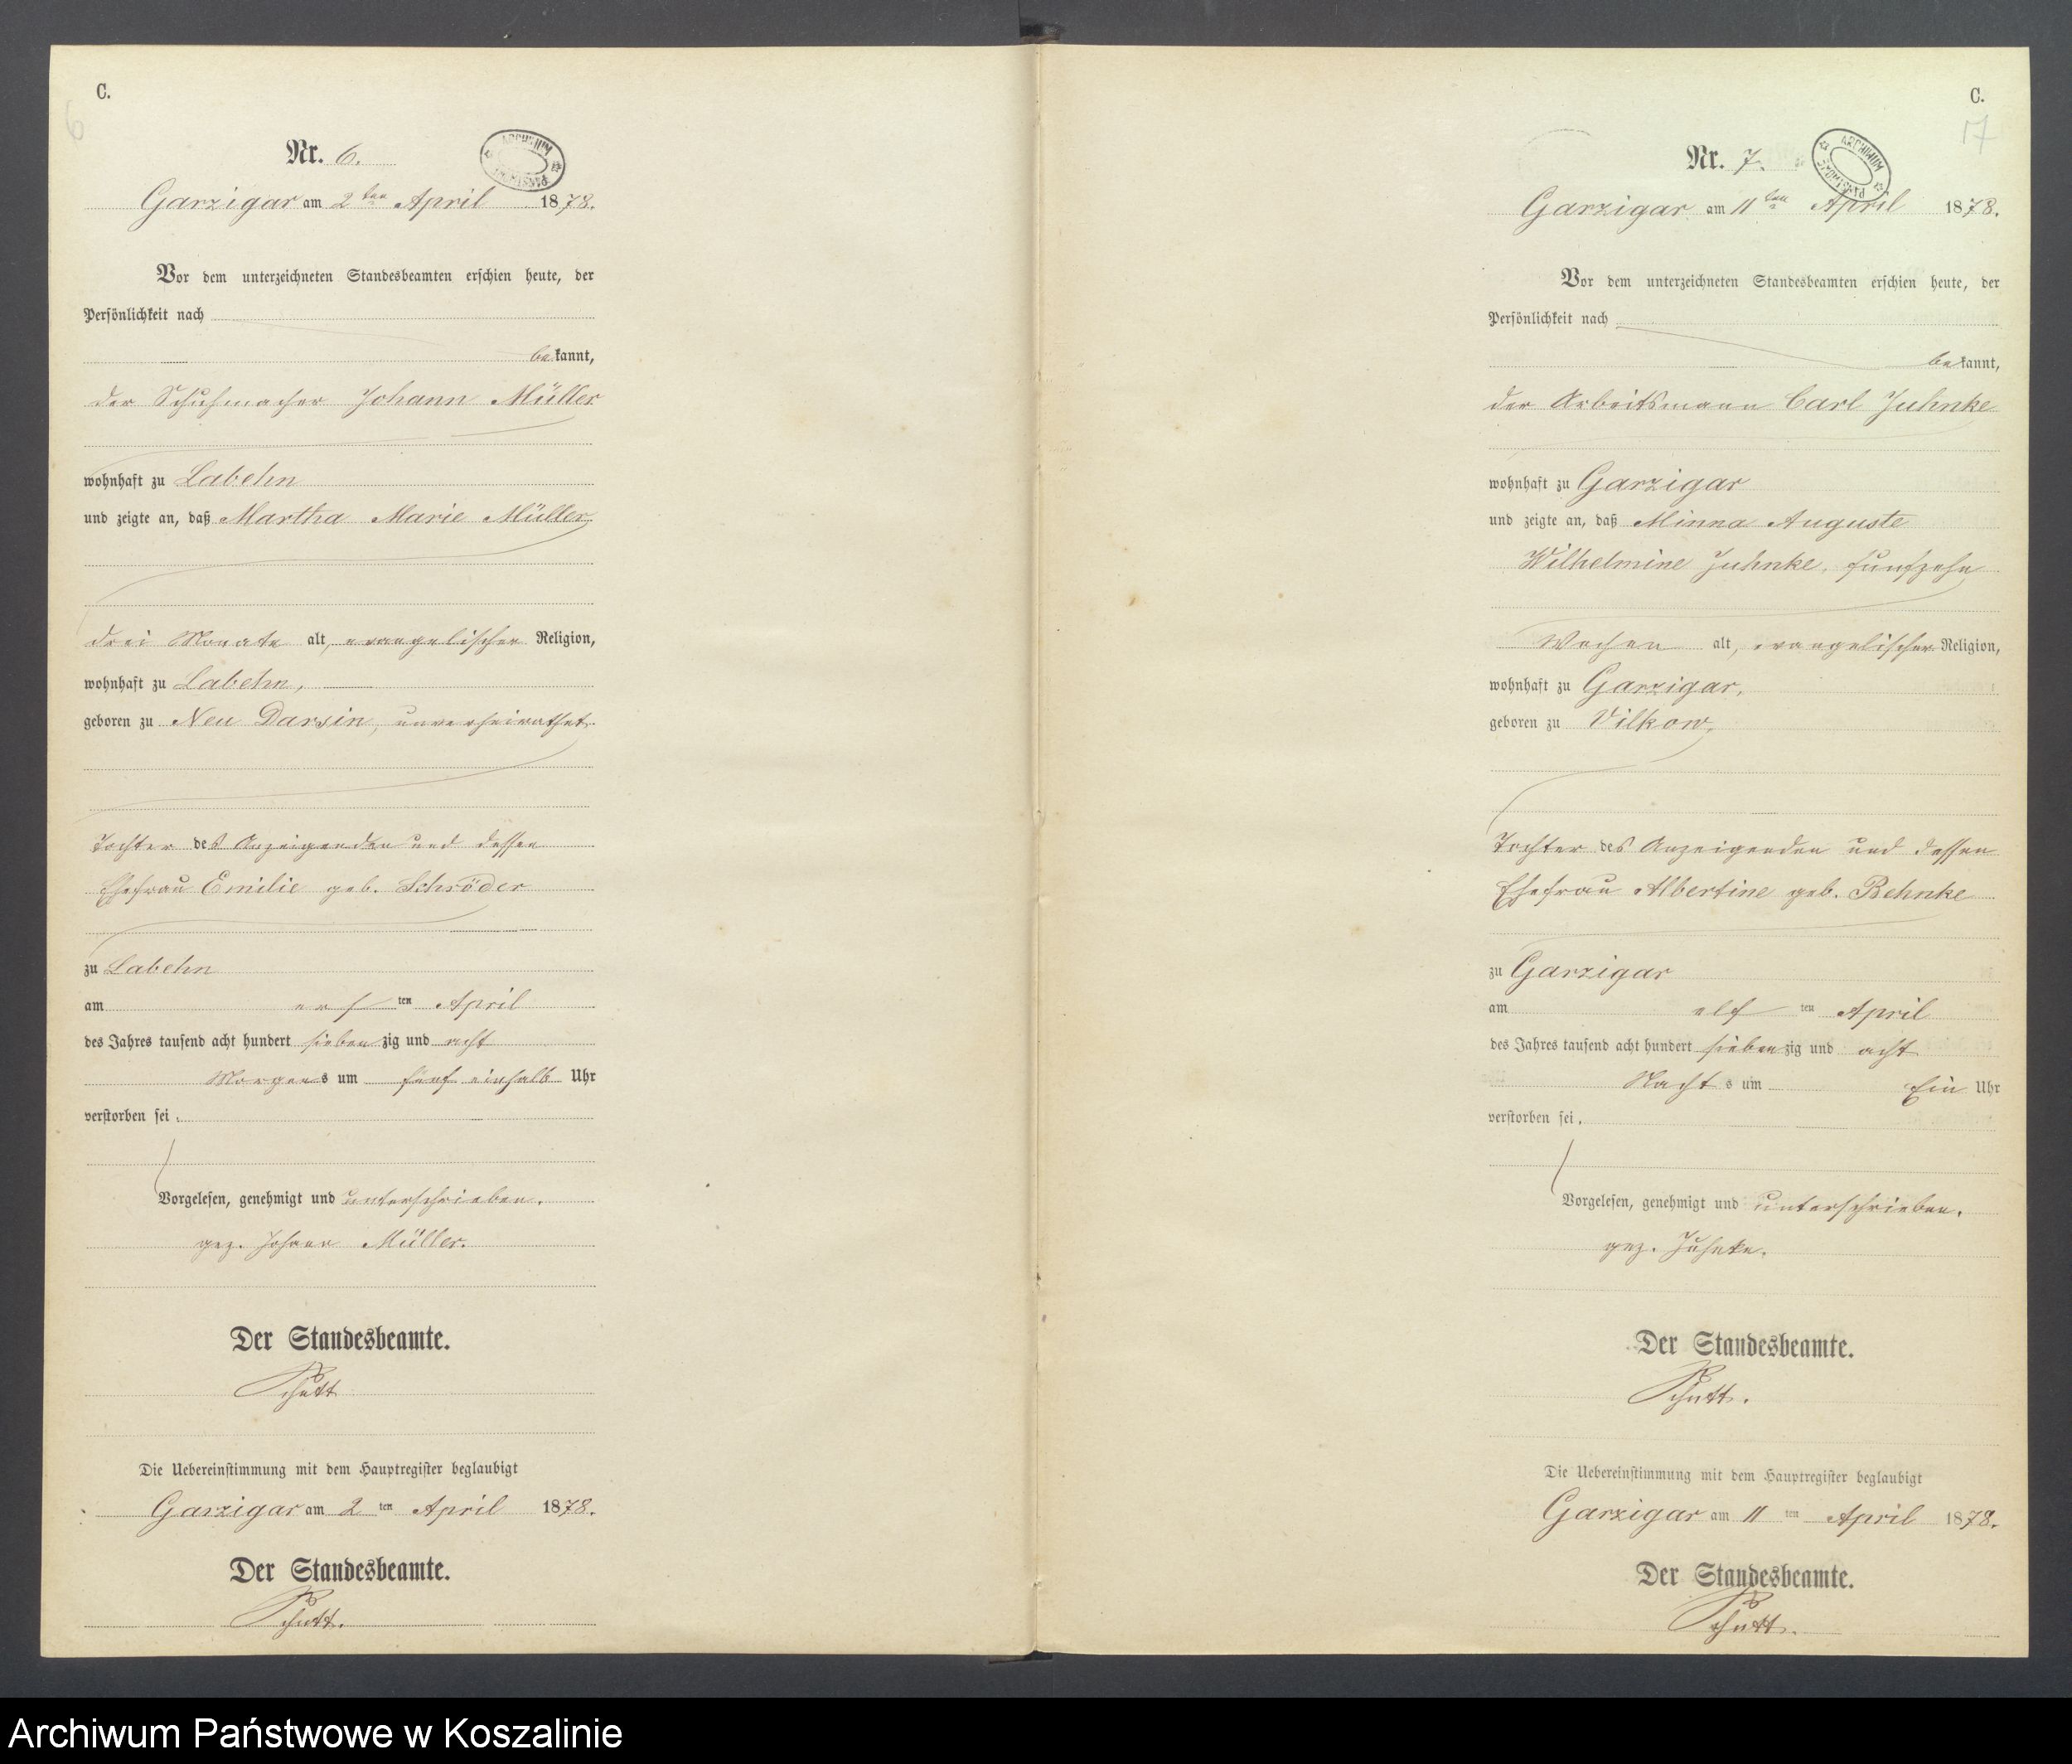 C.
6
Nr. 6.
ARCHIWUM PAŃSTWOWE
Garzigar am 2ten April 1878.
Vor dem unterzeichneten Standesbeamten erschien heute, der
Persönlichkeit nach
bekannt,
der Schuhmacher Johann Müller
wohnhaft zu Labehn
und zeigte an, daß Martha Marie Müller
drei Monate alt, evangelischer Religion,
wohnhaft zu Labehn,
geboren zu Neu Darsin, unverheirathet
Tochter des Anzeigenden und dessen
Ehefrau Emilie geb. Schröder
zu Labehn
am ten April
des Jahres tausend acht hundert siebenzig und acht
Morgens um fünf einhalb Uhr
verstorben sei.
Vorgelesen, genehmigt und unterschrieben.
gez. Johann Müller.
Der Standesbeamte.
Schutt
Die Uebereinstimmung mit dem Hauptregister beglaubigt
Garzigar am 2ten April 1878.
Der Standesbeamte.
Schutt.
C.
17
Nr. 7.
ARCHIWUM PAŃSTWOWE
Garzigar am 11ten April 1878.
Vor dem unterzeichneten Standesbeamten erschien heute, der
Persönlichkeit nach
bekannt,
der Arbeitsmann Carl Juhnke
wohnhaft zu Garzigar
und zeigte an, daß Minna Auguste
Wilhelmine Juhnke, funfzehn
Wochen alt, evangelischer Religion,
wohnhaft zu Garzigar,
geboren zu Vilkow,
Tochter des Anzeigenden und dessen
Ehefrau Albertine geb. Behnke
zu Garzigar
am elf ten April
des Jahres tausend acht hundert siebenzig und acht
Nachts um Ein Uhr
verstorben sei.
Vorgelesen, genehmigt und unterschrieben.
gez. Juhnke.
Der Standesbeamte.
Schutt.
Die Uebereinstimmung mit dem Hauptregister beglaubigt
Garzigar am 11ten April 1878.
Der Standesbeamte.
Schutt.
Archiwum Państwowe w Koszalinie